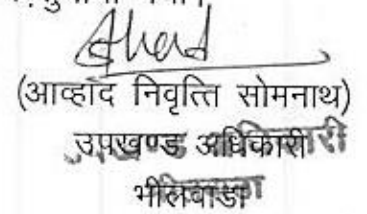 (आव्हाद निवृत्ति सोमनाथ)
उपखण्ड अधिकारी
भीलवाडा